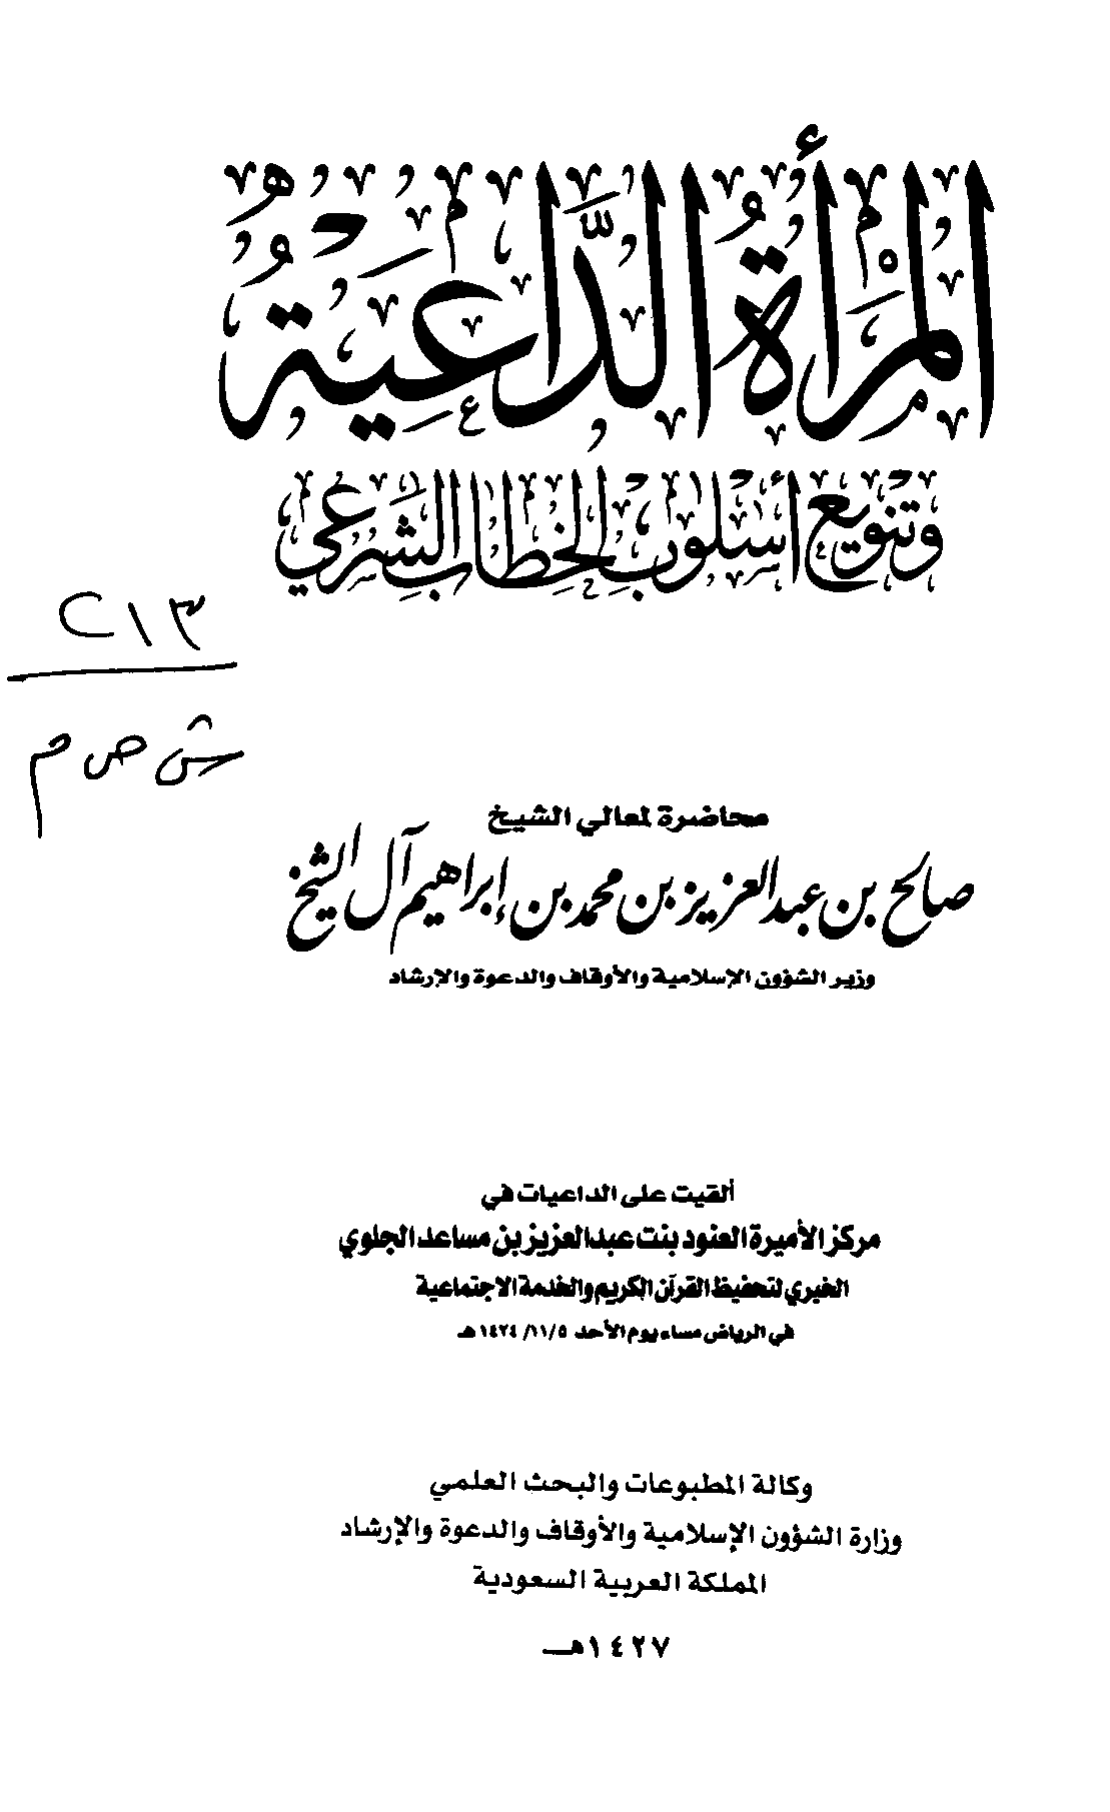 المرأة الدَّاعية
وتنويع أسلوب الخطاب الشرعي
٢١٣
ش ص م
محاضرة لمعالي الشيخ
صالح بن عبدالعزيز بن محمد بن إبراهيم آل الشيخ
وزير الشؤون الإسلامية والأوقاف والدعوة والإرشاد
ألقيت على الداعيات في
مركز الأميرة العنود بنت عبدالعزيز بن مساعد الجلوي
الخيري لتحفيظ القرآن الكريم والخدمة الاجتماعية
في الرياض مساء يوم الأحد ١٤٢٤/١١/٥هـ
وكالة المطبوعات والبحث العلمي
وزارة الشؤون الإسلامية والأوقاف والدعوة والإرشاد
المملكة العربية السعودية
١٤٢٧هـ